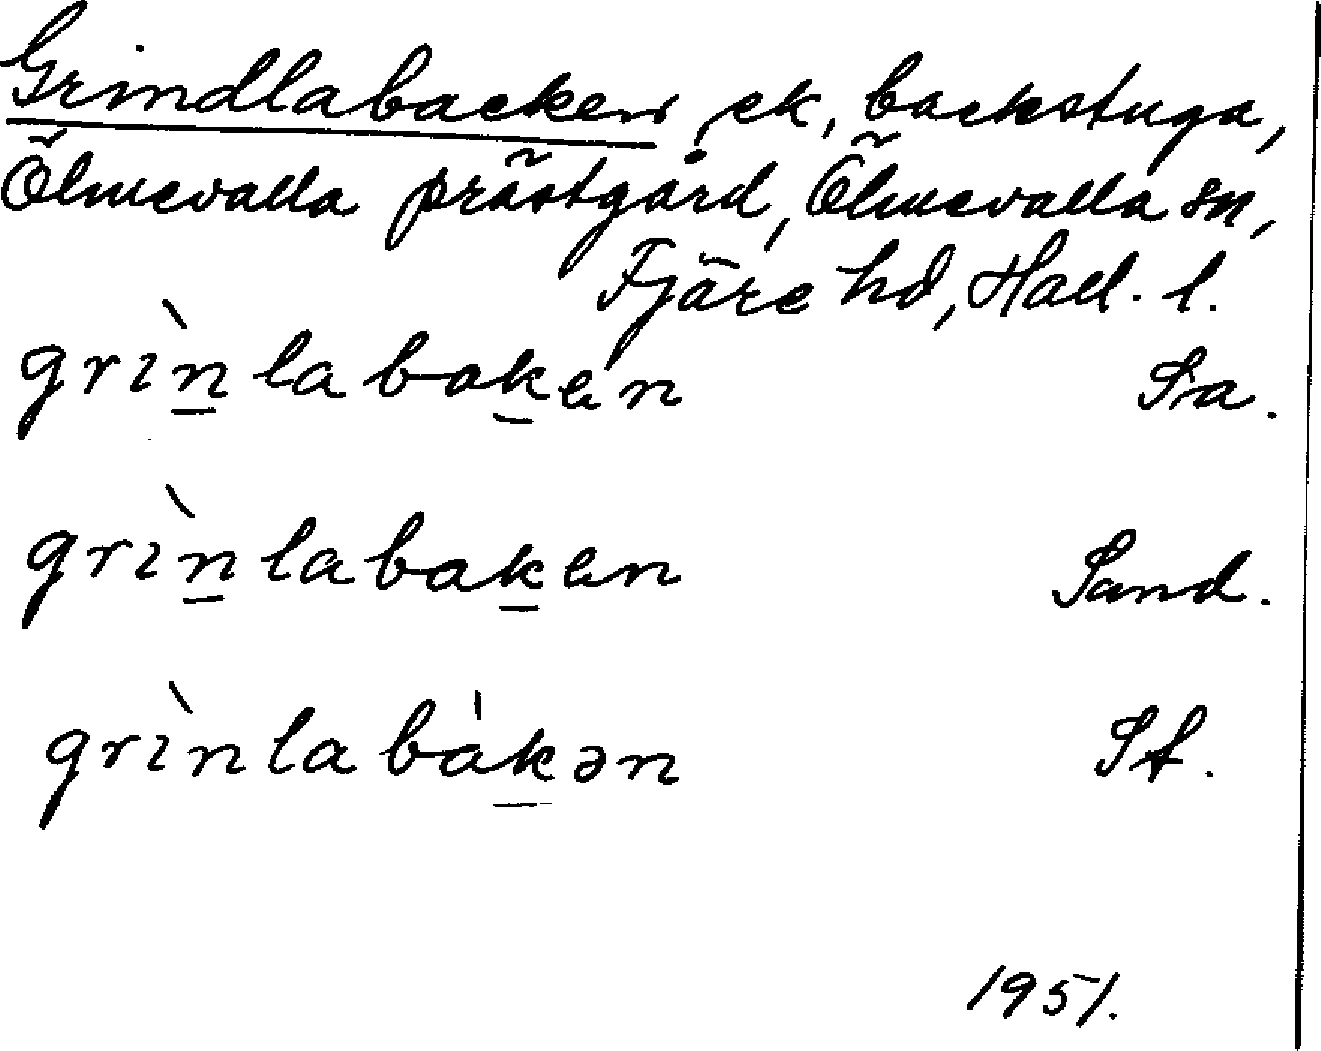 Grindlabacken, ek, backstuga,
Ölmevalla prästgård, Ölmevalla sn,
Fjäre hd, Hall. l.
grìn̲labak̲en Sa.
grìn̲labak̲en Sand.
grìnlabàk̲ən St.
1951.